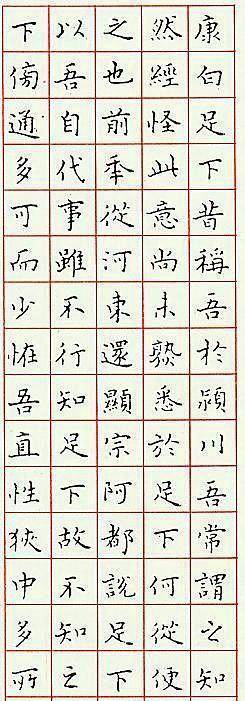 康白足下昔稱吾於潁川吾常謂之知
然經怪此意尚未熟悉於足下何從便
之也前秊從河東還顯宗阿都說足下
以吾自代事雖不行知足下故不知之
下傍通多可而少恠吾直性狹中多所